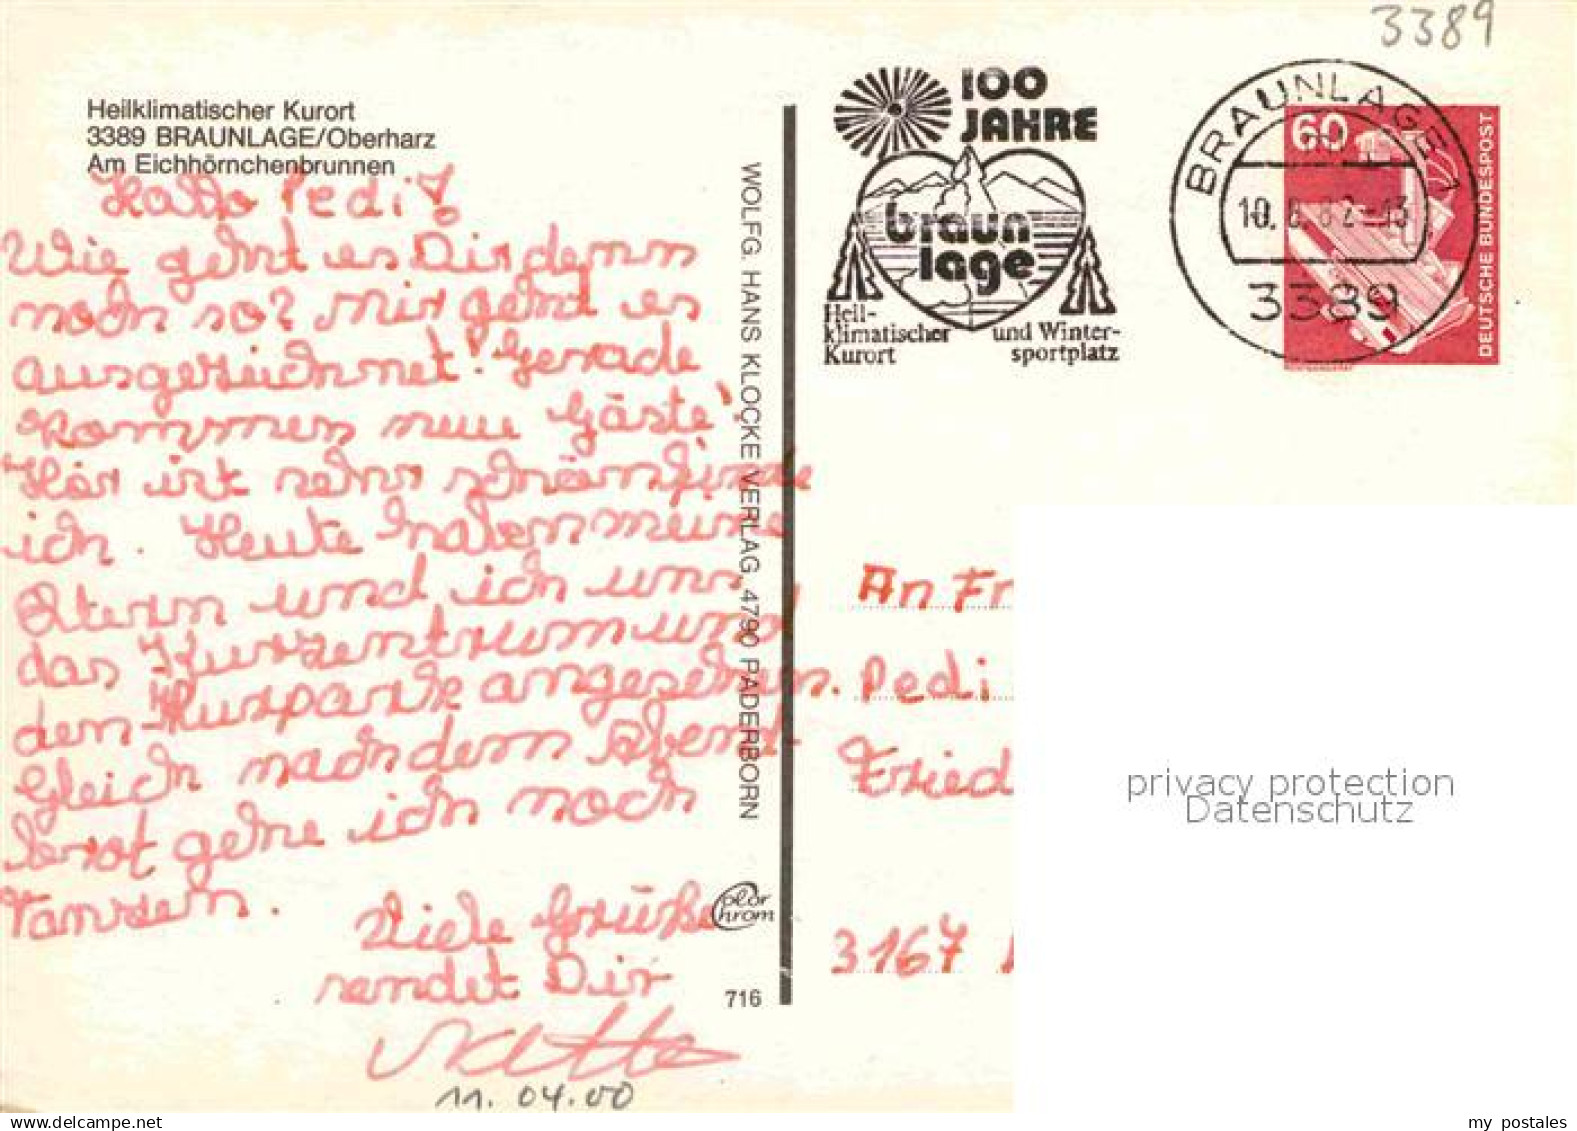 3389
Heilklimatischer Kurort
3389 BRAUNLAGE/Oberharz
Am Eichhörnchenbrunnen
Hallo Pedi!
Wie geht es Dir denn
noch so? Mir geht es
ausgezeichnet! Gerade
kommen neue Gäste!
Hier ist sehr schön finde
ich. Heute haben meine
Eltern und ich uns
das Kurzentrum und
den Kurpark angesehen.
Gleich nach dem Abend-
brot gehe ich noch
Tanzen.
Viele Grüße
sendet Dir
11.04.00
WOLFG. HANS KLOCKE VERLAG, 4790 PADERBORN
Color
Chrom
716
100
JAHRE
braun
lage
Heil-
klimatischer
Kurort
und Winter-
sportplatz
BRAUNLAGE 1
10.8.82-13
3389
60
DEUTSCHE BUNDESPOST
An Fr
Pedi
Fried
3167
privacy protection
Datenschutz
my postales